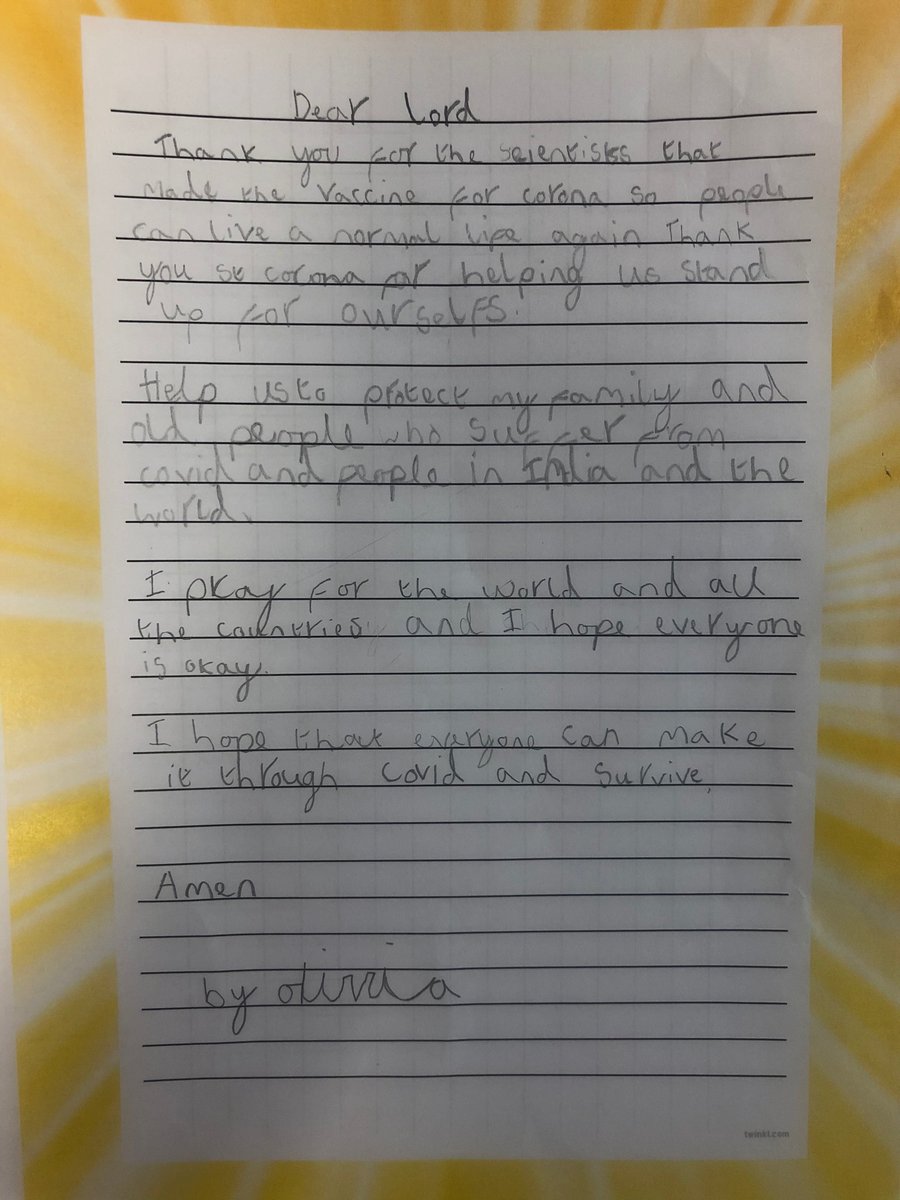 Dear Lord
Thank you for the scientists that
made the vaccine for corona so people
can live a normal life again Thank
you st corona for helping us stand
up for ourselfs.
Help us to protect my family and
old people who suffer from
covid and people in India and the
world.
I pray for the world and all
the countries and I hope everyone
is okay.
I hope that everyone can make
it through covid and survive.
Amen
by olivia
twinkl.com